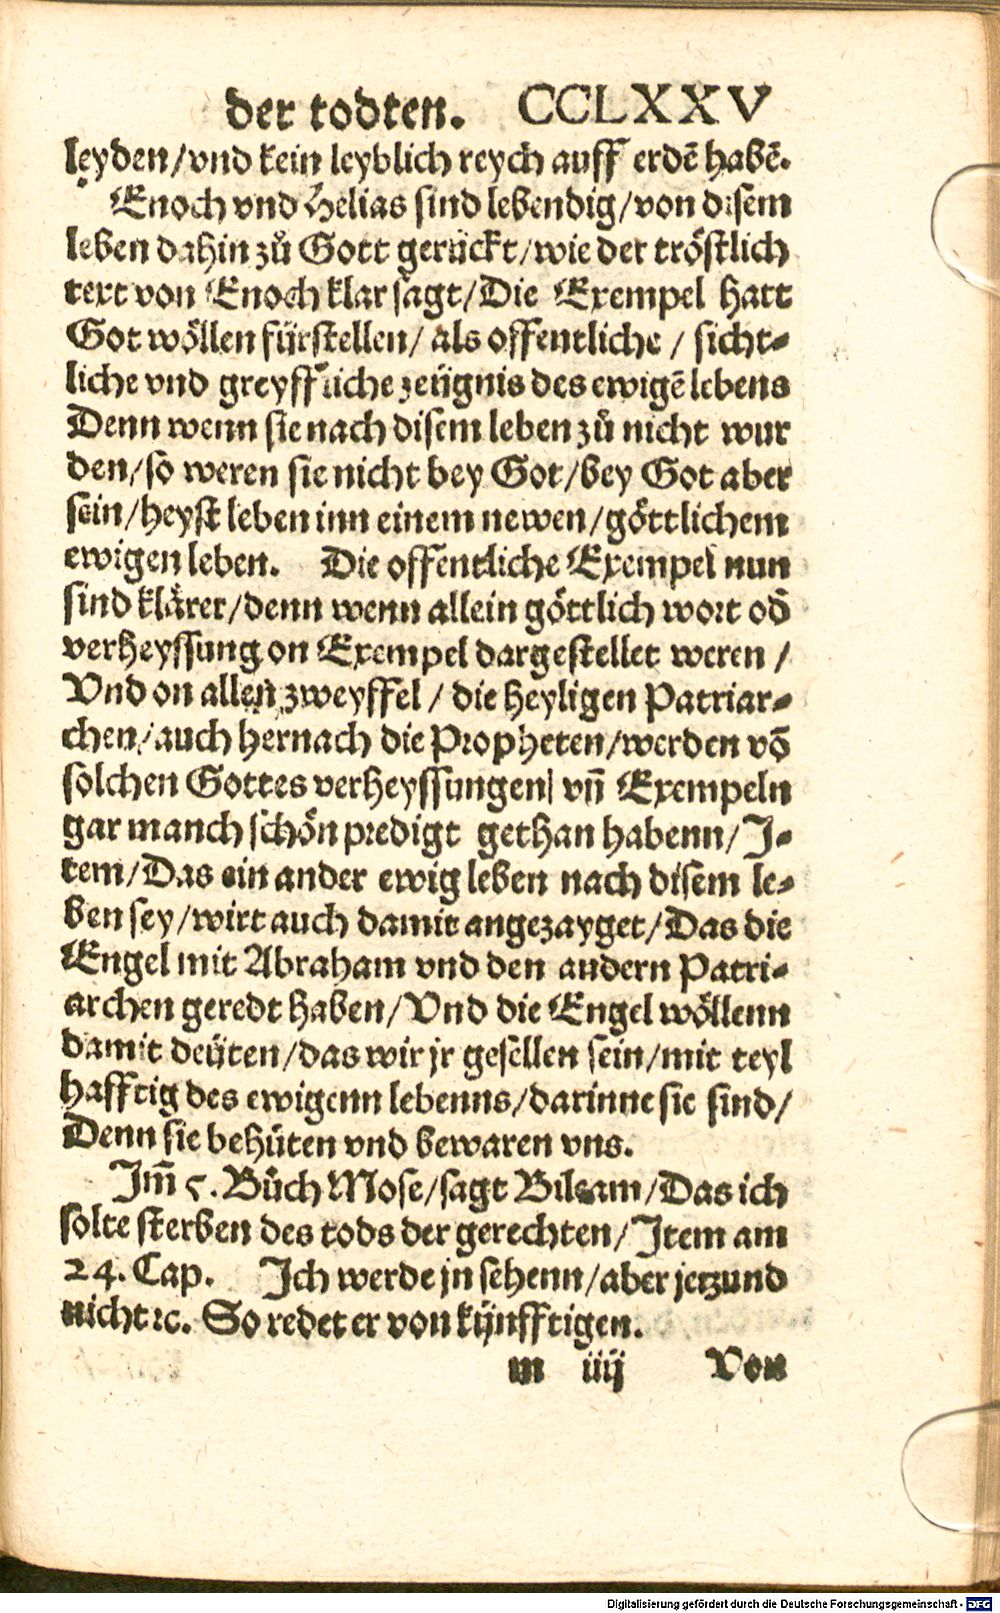 der todten. CCLXXV
leyden/vnd kein leyblich reych auff erdē habē.
Enoch vnd Helias sind lebendig/von disem
leben dahin zů Gott gerückt/wie der tröstlich
text von Enoch klar sagt/Die Exempel hatt
Got wöllen fürstellen/ als offentliche / sicht-
liche vnd greyffliche zeügnis des ewigē lebens
Denn wenn sie nach disem leben zů nicht wur
den/so weren sie nicht bey Got/bey Got aber
sein/heyst leben inn einem newen/göttlichem
ewigen leben. Die offentliche Exempel nun
sind klärer/denn wenn allein göttlich wort od̄
verheyssung on Exempel dargestellet weren /
Vnd on allen zweyffel / die heyligen Patriar-
chen/auch hernach die Propheten/werden vō
solchen Gottes verheyssungen/ vn̄ Exempeln
gar manch schön predigt gethan habenn/ J-
tem/Das ein ander ewig leben nach disem le-
ben sey/wirt auch damit angezayget/Das die
Engel mit Abraham vnd den andern Patri-
archen geredt haben/Vnd die Engel wöllenn
damit deüten/das wir jr gesellen sein/mit teyl
hafftig des ewigenn lebenns/darinne sie sind/
Denn sie behüten vnd bewaren vns.
Jm̄ 5. Bůch Mose/sagt Bileam/Das ich
solte sterben des tods der gerechten/Jtem am
24. Cap. Jch werde jn sehenn/aber jetzund
nicht ꝛc. So redet er von künfftigen.
m iiij Von
Digitalisierung gefördert durch die Deutsche Forschungsgemeinschaft - DFG